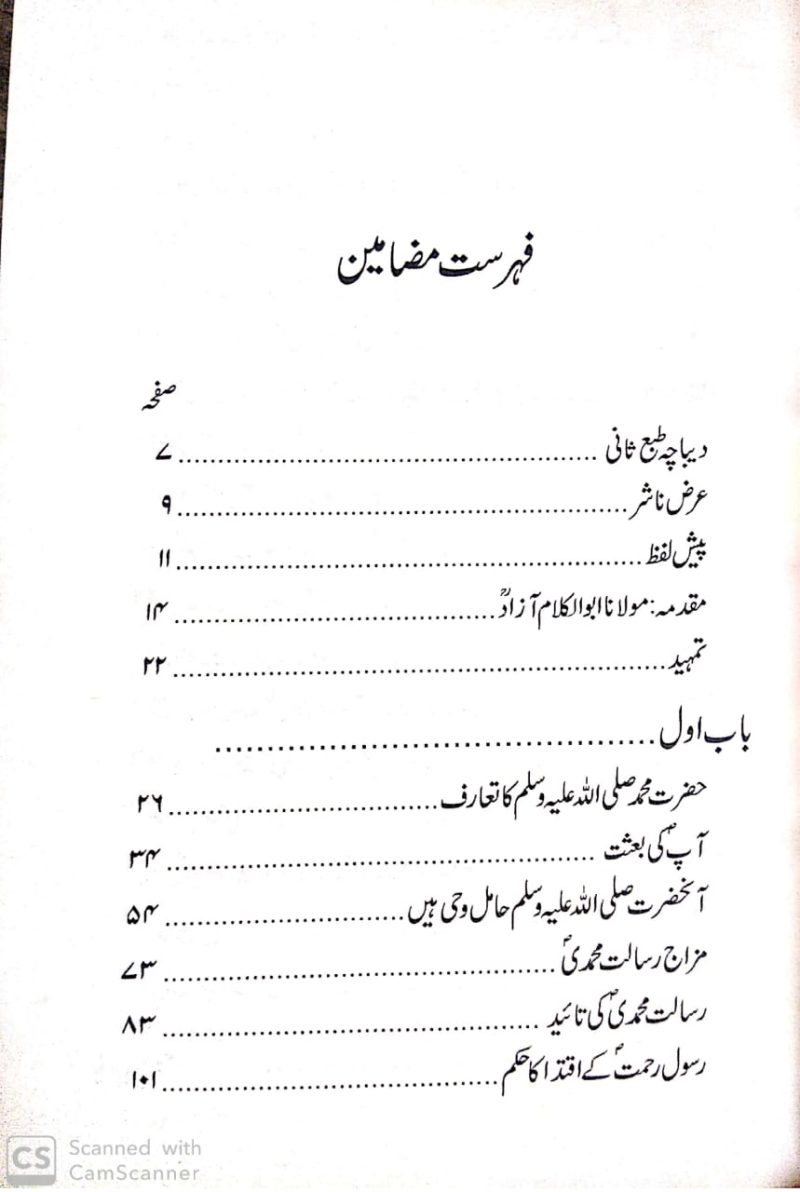 فہرست مضامین
صفحہ
دیباچہ طبع ثانی ........................ ۷
عرض ناشر ........................ ۹
پیش لفظ ........................ ۱۱
مقدمہ: مولانا ابوالکلام آزادؒ ........................ ۱۴
تمہید ........................ ۲۲
باب اول ........................
حضرت محمد صلی اللہ علیہ وسلم کا تعارف ........................ ۲۶
آپؐ کی بعثت ........................ ۳۴
آنحضرت صلی اللہ علیہ وسلم حامل وحی ہیں ........................ ۵۴
مزاج رسالت محمدیؐ ........................ ۷۳
رسالت محمدیؐ کی تائید ........................ ۸۳
رسول رحمتؐ کے اقتدا کا حکم ........................ ۱۰۱
CS Scanned with
CamScanner